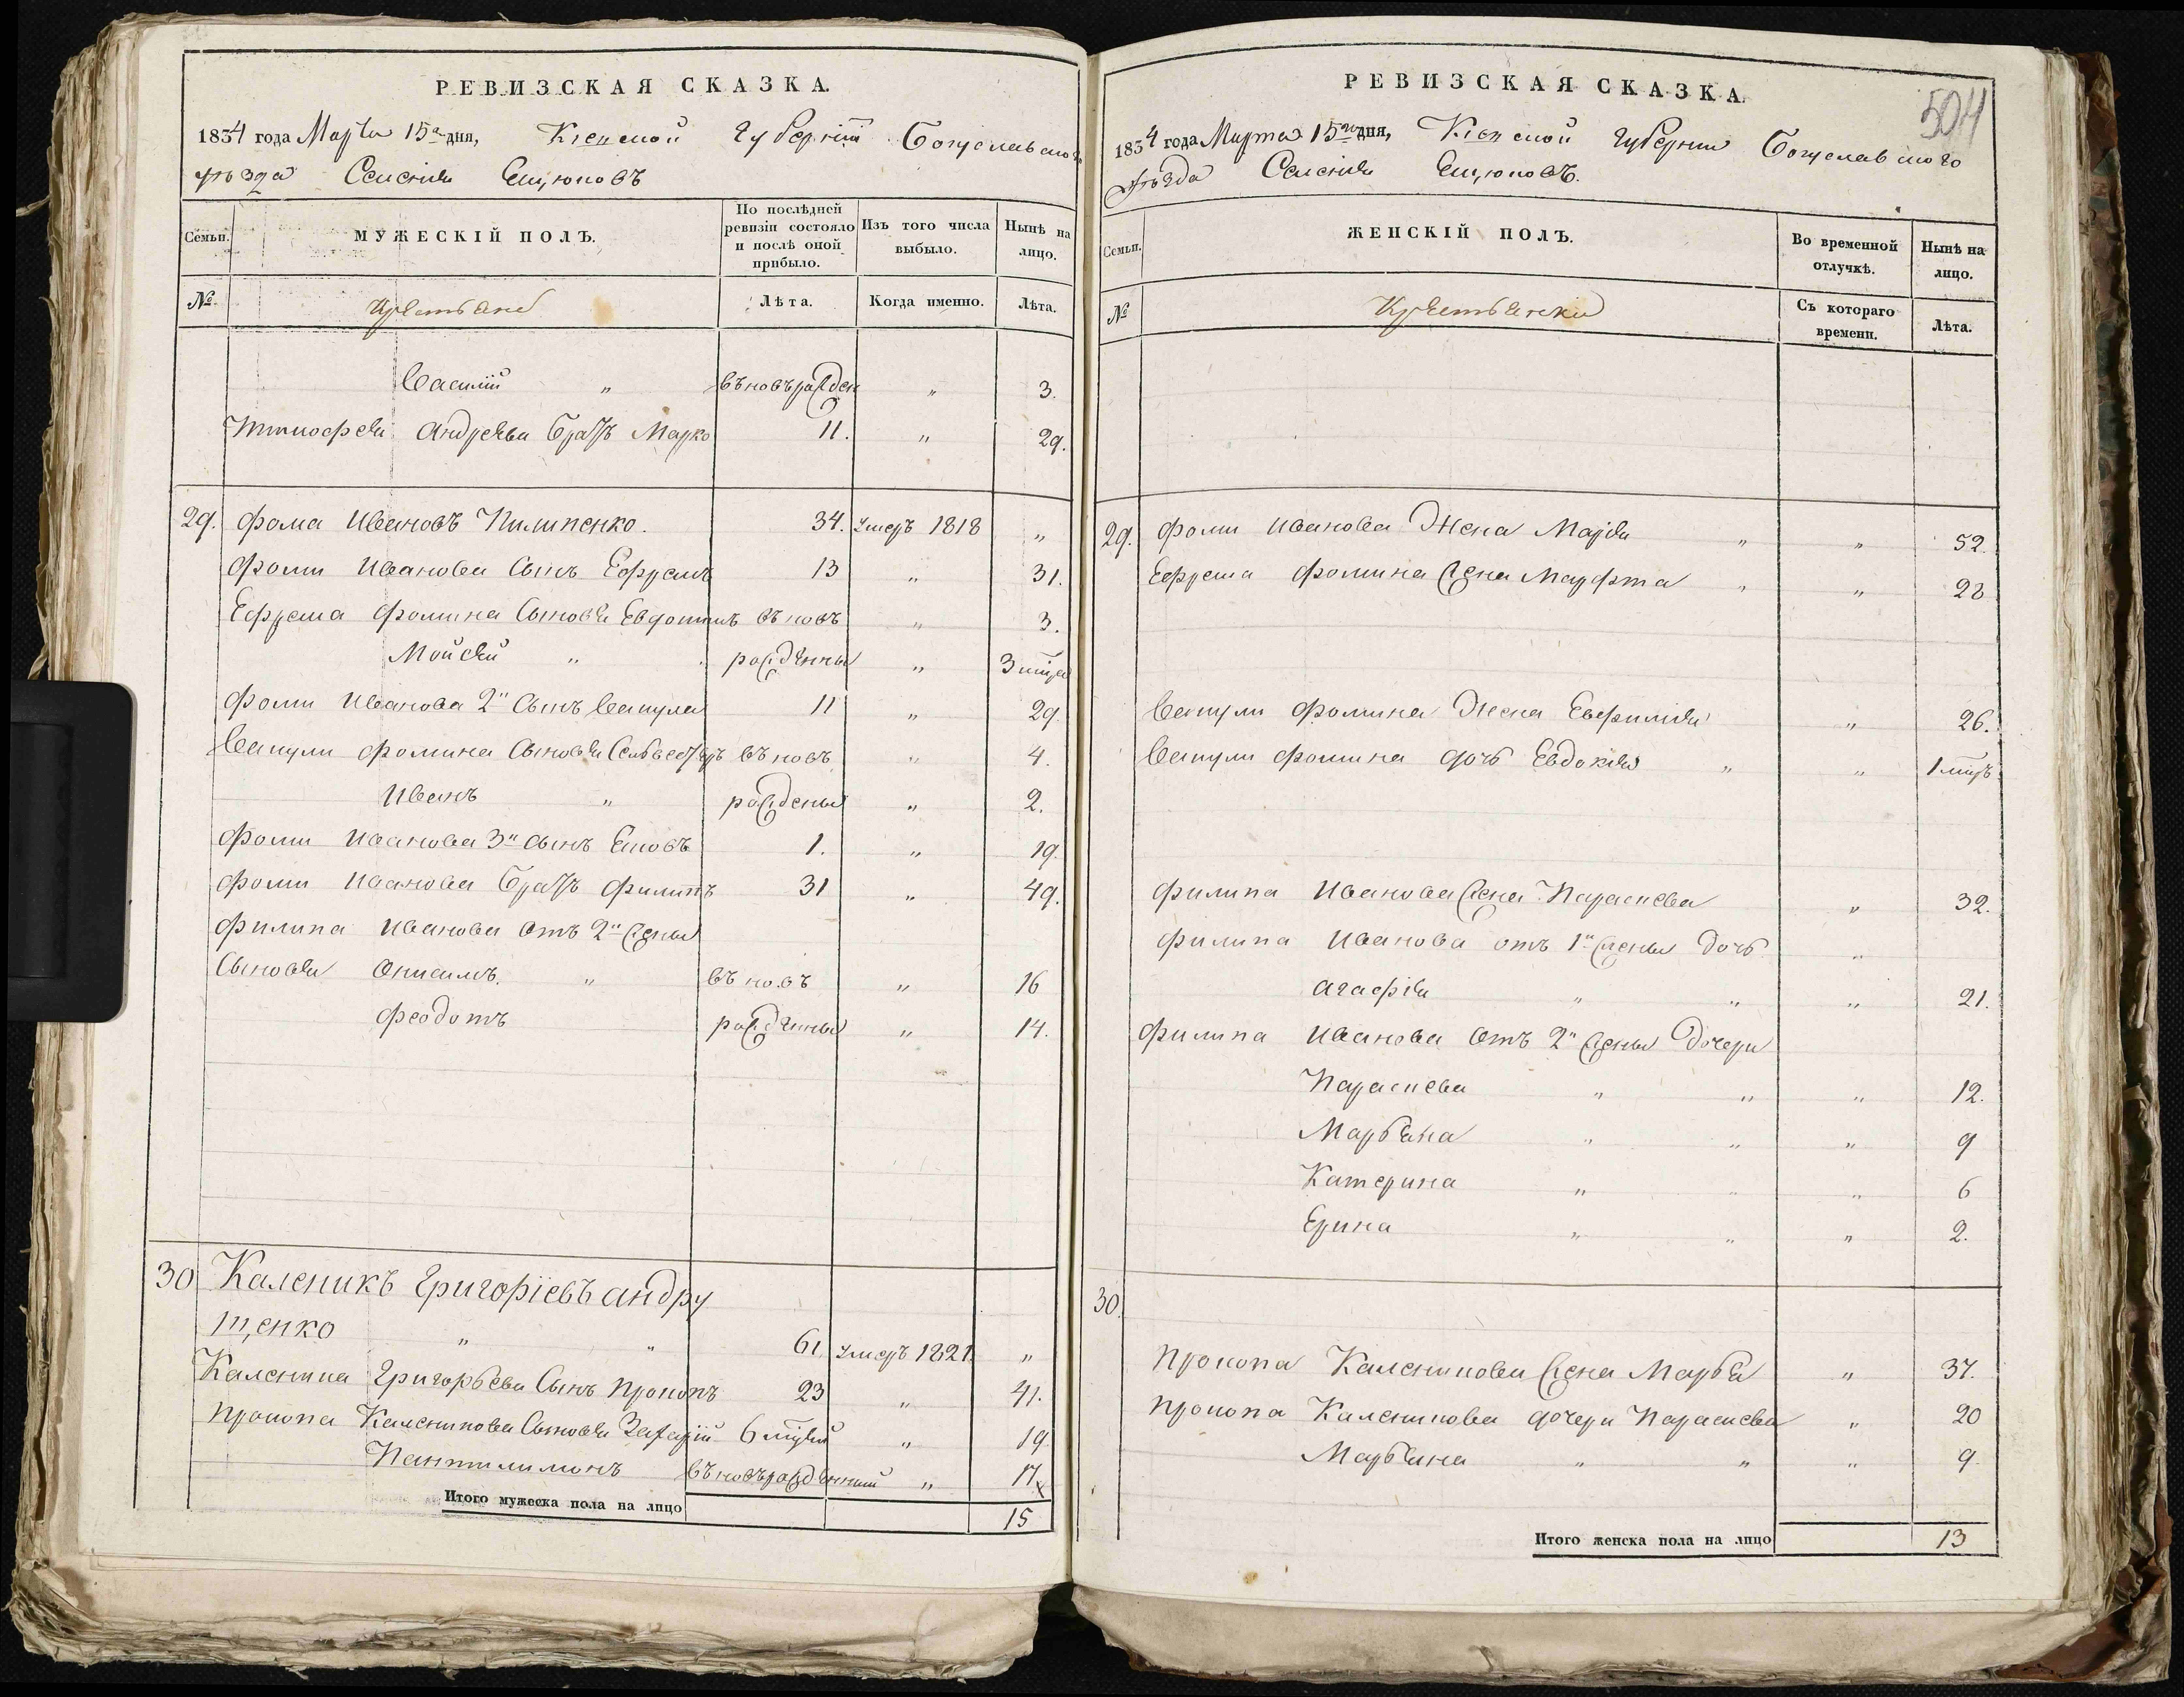 РЕВИЗСКАЯ СКАЗКА.
1834 года Марта 15го дня, Кіевской губерніи Богуславскаго
уѣзда Селенія Емчюковъ
Семьи. МУЖЕСКІЙ ПОЛЪ. По послѣдней ревизіи состояло и послѣ оной прибыло. Изъ того числа выбыло. Нынѣ на лицо.
№ Крестьяне Лѣта. Когда именно. Лѣта.
Василій " въновърожден " 3.
Тимофея Андреева братъ Марко 11. " 29.
29. Фома Ивановъ Пилипенко. 34. умеръ 1818 "
Фомы Иванова сынъ Ефремъ 13 " 31.
Ефрема Фомина сыновья Евдокимъ въновъ " 3.
Мойсей " рожденны " 3 мца
Фомы Иванова 2й сынъ Вакула 11 " 29
Вакулы Фомина сыновья Селвестръ въновъ " 4.
Иванъ " рождены " 2.
Фомы Иванова 3й сынъ Яковъ 1. " 19.
Фомы Иванова братъ Филипъ 31 " 49.
Филипа Иванова отъ 2й жены
сыновья Онисимъ. " въновъ " 16
Феодотъ рожденны " 14.
30 Каленикъ Григоріевъ Андру
щенко " " 61 умеръ 1821. "
Каленика Григорьева сынъ Прокопъ 23 " 41.
Прокопа Каленикова сыновья Захарій 6 мцей " 19
Пантилимонъ въновърожденный " 17
Итого мужеска пола на лицо 15
РЕВИЗСКАЯ СКАЗКА.
504
1834 года Марта 15го дня, Кіевской губерніи Богуславского
уѣзда Селенія Емчюковъ.
Семьи. ЖЕНСКІЙ ПОЛЪ. Во временной отлучкѣ. Нынѣ на лицо.
№ Крестьянки Съ котораго времени. Лѣта.
29. Фомы Иванова жена Марія " " 52.
Ефрема Фомина жена Марфта " " 28
Вакулы Фомина жена Евфимія " 26.
Вакулы Фомина дочь Евдокія " " 1 мцъ
Филипа Иванова жена Параскева " 32.
Филипа Иванова отъ 1й жены дочь "
Агафія " " " 21.
Филипа Иванова отъ 2й жены дочери
Параскева " " " 12.
Марьяна " " " 9
Катерина " " " 6
Ерина " " " 2.
30.
Прокопа Каленикова жена Марья " 37.
Прокопа Каленикова дочери Параскева " 20
Марьяна " " " 9.
Итого женска пола на лицо 13